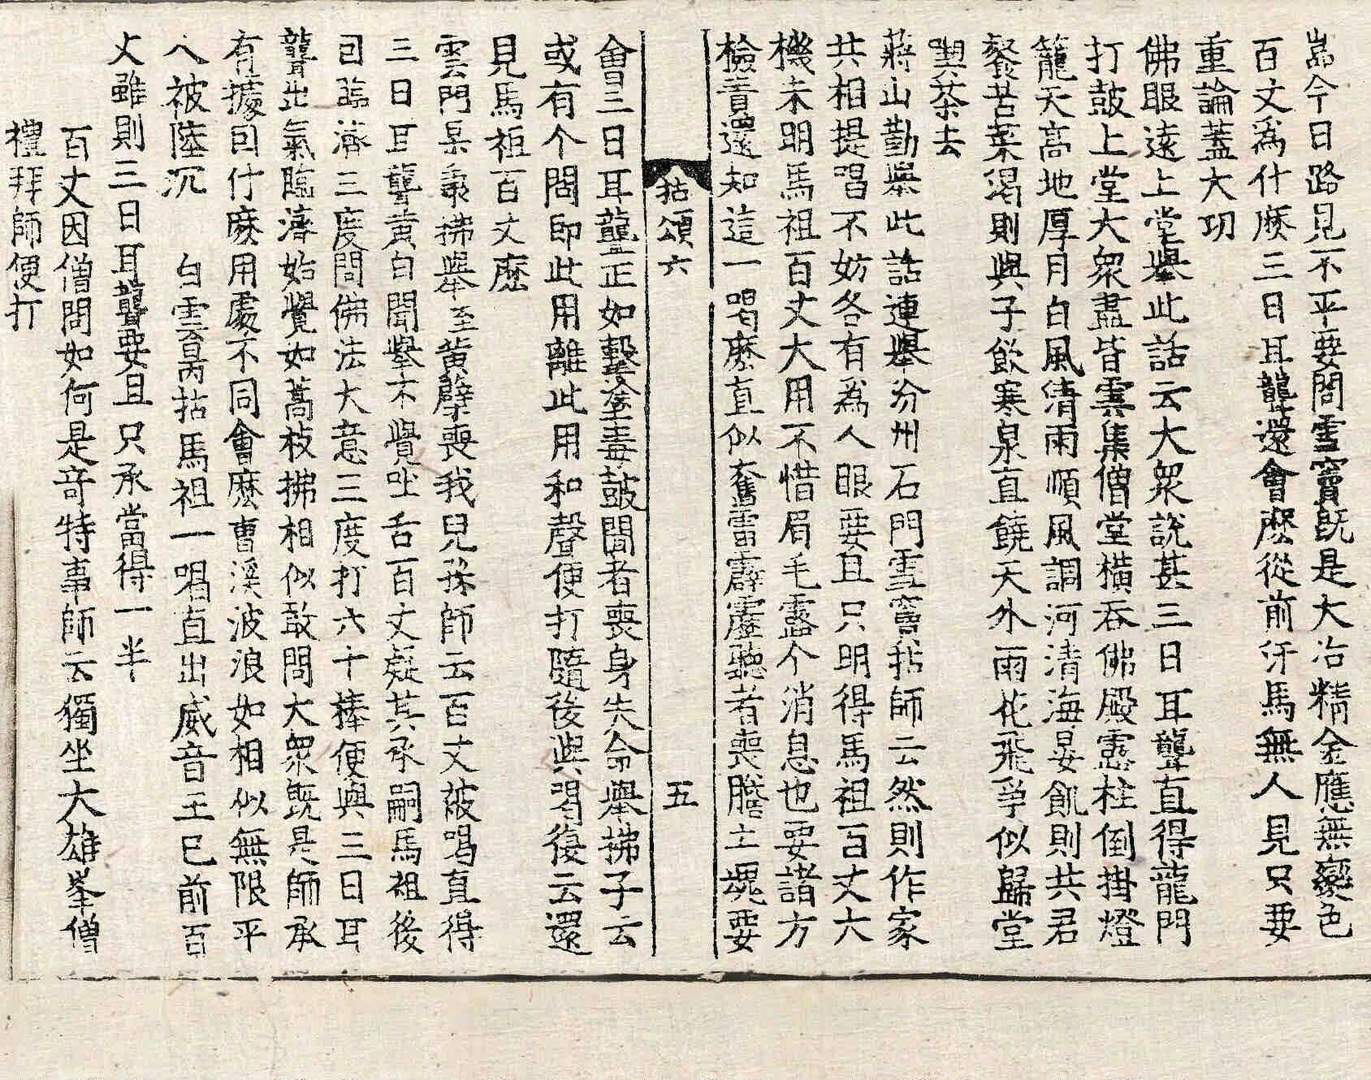 嵓今日路見不平要問雪竇旣是大冶精金應無變色
百丈爲什麽三日耳聾還會麽從前汗馬無人見只要
重論蓋大功
佛眼遠上堂舉此話云大衆說甚三日耳聾直得龍門
打鼓上堂大衆盡皆雲集僧堂橫吞佛殿露柱倒掛燈
籠天高地厚月白風淸雨順風調河清海晏飢則共君
餐苦菜渴則與子飮寒泉直饒天外雨花飛爭似歸堂
喫茶去
蔣山勤舉此話連擧汾州石門雪竇拈師云然則作家
共相提唱不妨各有爲人眼要且只明得馬祖百丈大
機未明馬祖百丈大用不惜眉毛露个消息也要諸方
檢責還知這一喝麽直似奮雷霹靂聽者喪膽亡魂要
拈頌六
五
會三日耳聾正如擊塗毒鼓聞者喪身失命擧拂子云
或有个問即此用離此用和聲便打隨後與喝復云還
見馬祖百丈麽
雲門杲秉拂擧至黃蘗喪我兒孫師云百丈被喝直得
三日耳聾黃白聞擧不覺吐舌百丈疑其承嗣馬祖後
因臨濟三度問佛法大意三度打六十棒便與三日耳
聾出氣臨濟始覺如蒿枝拂相似敢問大衆旣是師承
有據因什麽用處不同會麽曹溪波浪如相似無限平
人被陸沉　白雲昺拈馬祖一喝直出威音王已前百
丈雖則三日耳聾要且只承當得一半
百丈因僧問如何是奇特事師云獨坐大雄峯僧
禮拜師便打